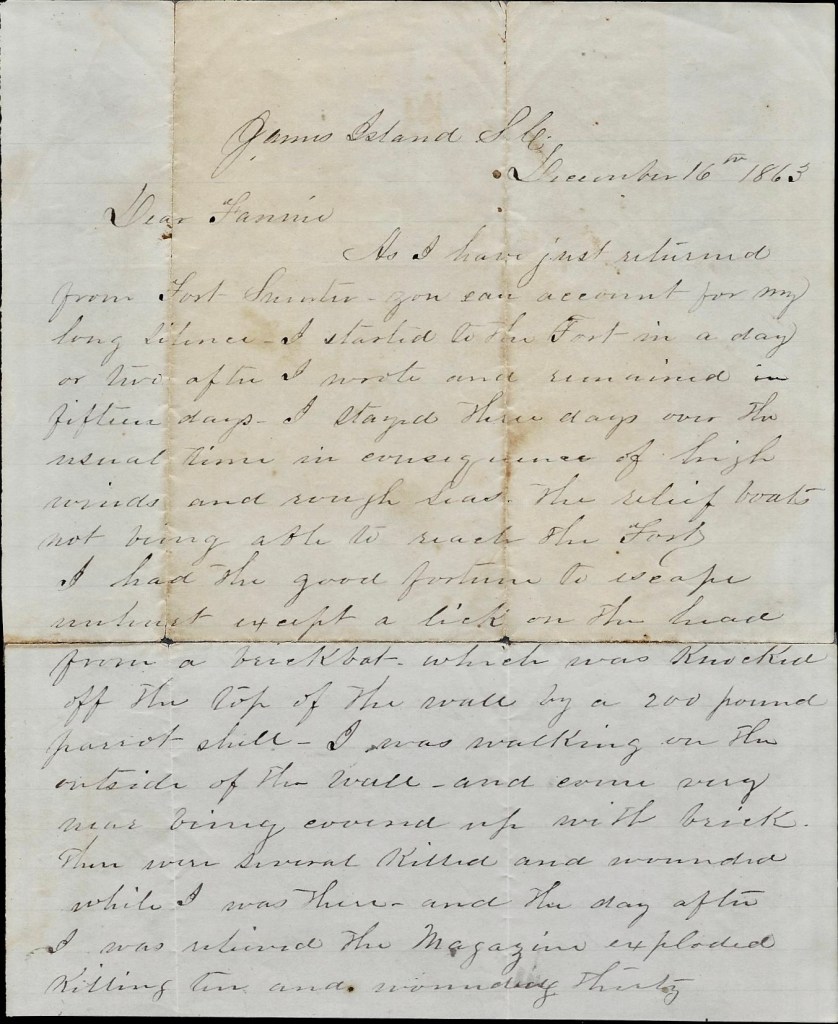 James Island S.C.
December 16th 1863
Dear Fannie
As I have just returned
from Fort Sumter - you can account for my
long silence - I started to the Fort in a day
or two after I wrote and remained in
fifteen days - I stayd three days over the
usual time in consequence of high
winds and rough seas. The relief boats
not being able to reach the Fort
I had the good fortune to escape
unhurt except a lick on the head
from a brickbat - which was knocked
off the top of the wall by a 200 pound
parrot shell - I was walking on the
outside of the wall - and come very
near being coverd up with brick.
There were several killed and wounded
while I was there - and the day after
I was relieved the Magazine exploded
killing ten and wounding thirty